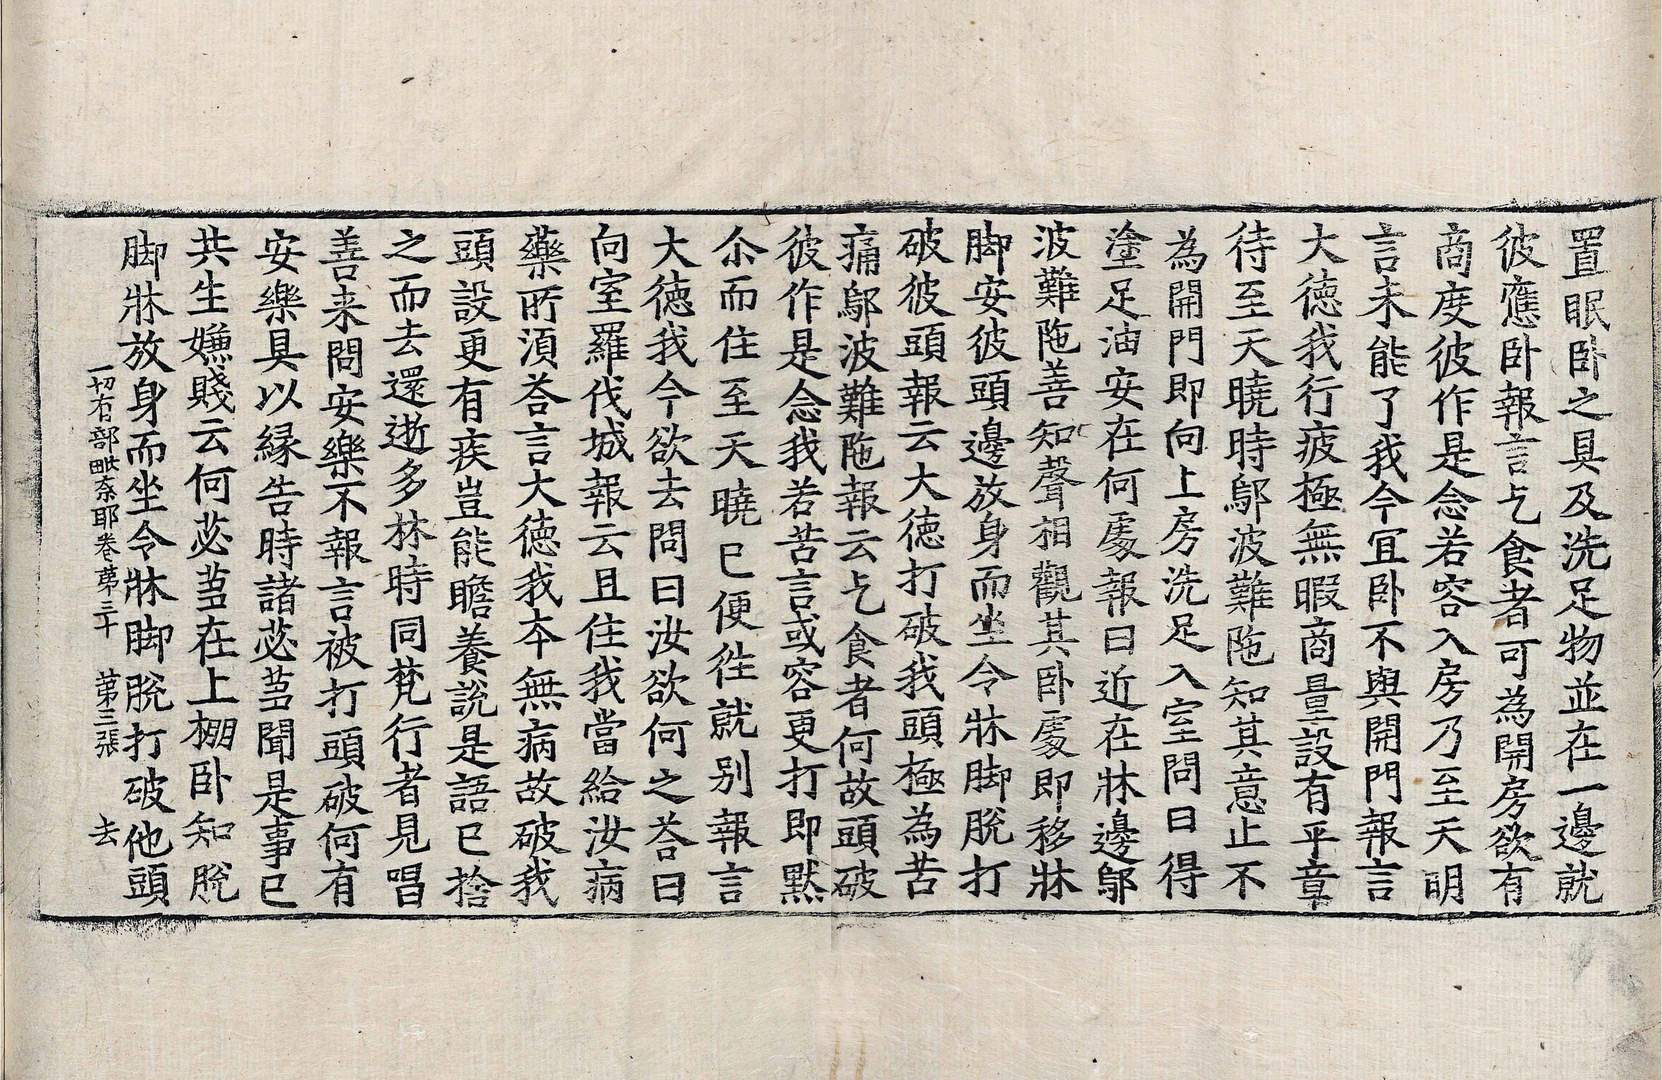 置眠卧之具及洗足物並在一邊就
彼應卧報言乞食者可為開房欲有
商度彼作是念若容入房乃至天明
言未能了我今冝卧不與開門報言
大德我行疲極無暇商量設有平章
待至天曉時鄔波難陁知其意止不
為開門即向上房洗足入室問曰得
塗足油安在何處報曰近在牀邊鄔
波難陁善知聲相觀其卧處即移牀
脚安彼頭邊放身而坐令牀脚脫打
破彼頭報云大德打破我頭極為苦
痛鄔波難陁報云乞食者何故頭破
彼作是念我若苦言或容更打即默
尒而住至天曉已便往就別報言
大德我今欲去問曰汝欲何之荅曰
向室羅伐城報云且住我當給汝病
藥所須荅言大德我本無病故破我
頭設更有疾豈能瞻養說是語已捨
之而去還逝多林時同梵行者見唱
善来問安樂不報言被打頭破何有
安樂具以縁告時諸苾芻聞是事已
共生嫌賤云何苾芻在上棚卧知脫
脚牀放身而坐令牀脚脫打破他頭
一切有部毗奈耶卷苐三十 苐三張 去